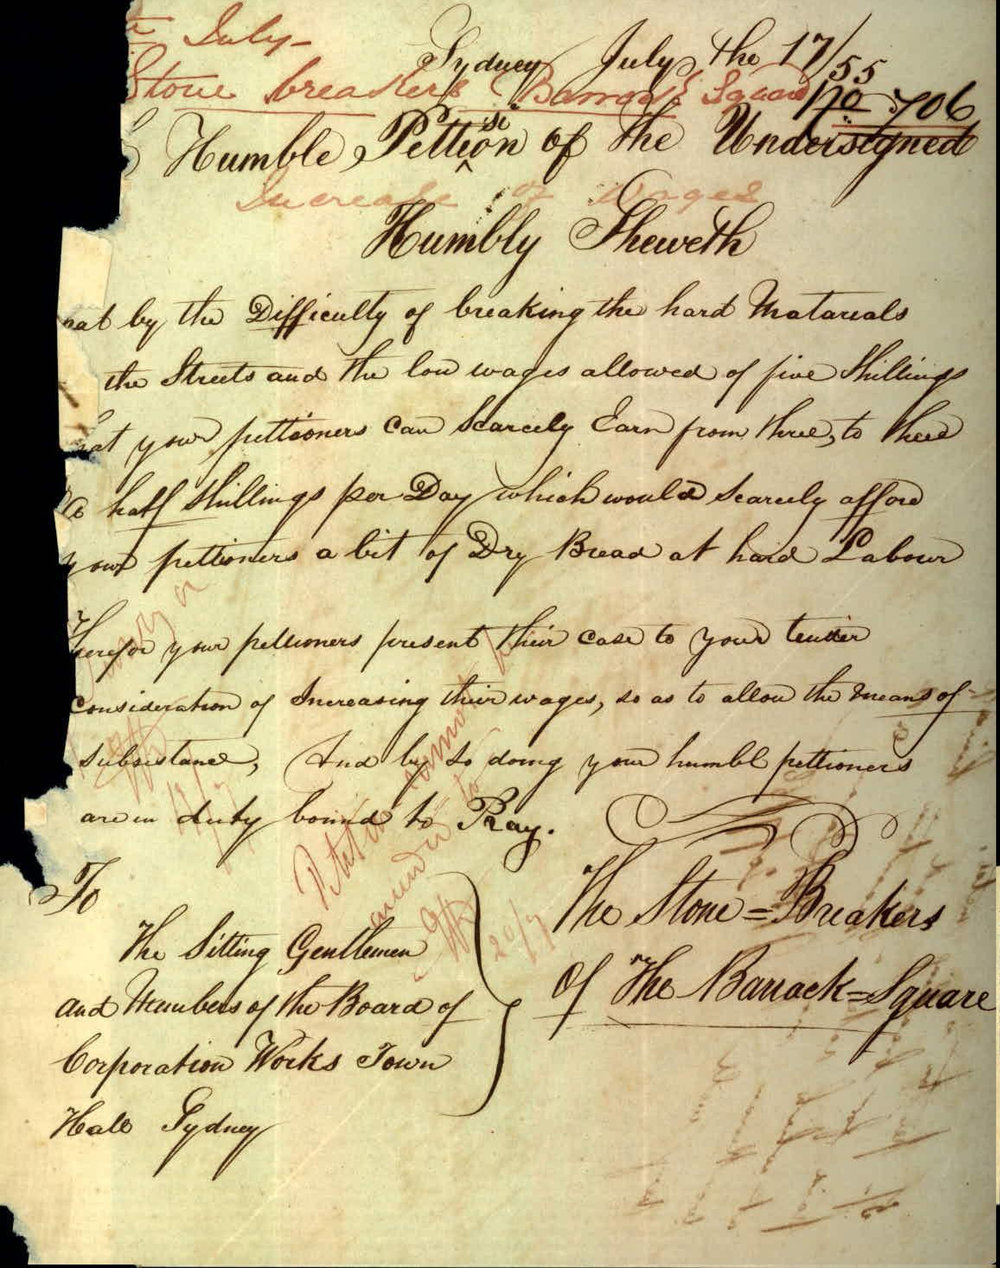 July
Sydney July the 17/55
Stone breakers Barrack Square
No 706
Humble Pettision of the Undersigned
Increase of Wages
Humbly Sheweth
at by the Difficulty of breaking the hard Matareals
the Streets and the low wages allowed of five Shillings
at your pettioners can Scarcely Earn from three, to three
half Shillings per Day which would scarcely afford
your pettioners a bit of Dry Bread at hard Labour
Therefor your pettioners present their case to your tender
Consideration of Increasing their wages, so as to allow the means of
Subsistance, And by so doing your humbl pettioners
are in duty bound to Pray.
To
The Sitting Gentlemen
and Members of the Board of
Corporation Works Town
Hall Sydney
The Stone=Breakers
Of The Barrack=Square
Petition cannot be
to
20/7